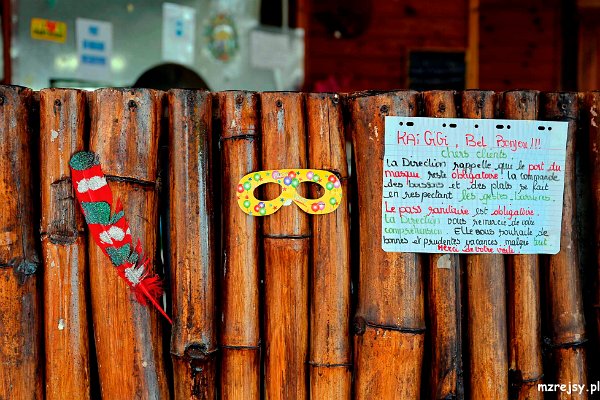 KAÏ GIGI, Bel Bonjou!!!
chers clients.
La Direction rappelle que le port du
masque reste obligatoire. la commande
des boissons et des plats se fait
en respectant les gestes barrières.
Le pass sanitaire est obligatoire.
La Direction vous remercie de votre
compréhension. Elle vous souhaite de
bonnes et prudentes vacances, malgré tout.
Merci de votre visite!
mzrejsy.pl